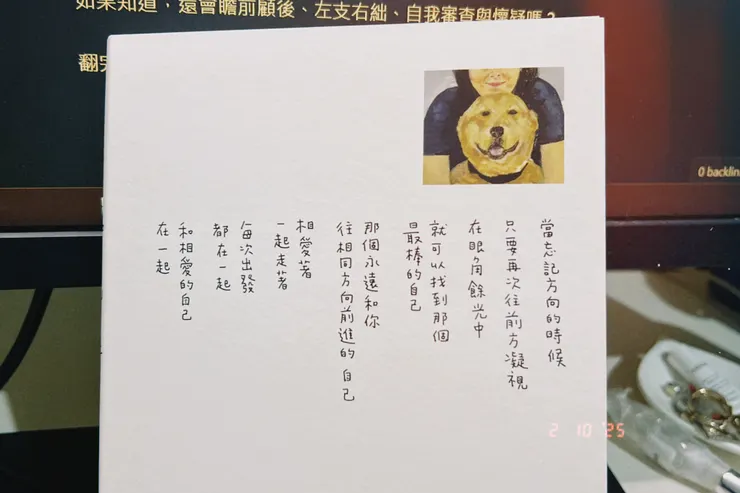 如果知道，還會瞻前顧後、左支右絀、自我審查與懷疑嗎？
翻完
0 backlin
當忘記方向的時候
只要再次往前方凝視
在眼角餘光中
就可以找到那個
最棒的自己
那個永遠和你
往相同方向前進的自己
相愛著
一起走著
每次出發
都在一起
和相愛的自己
在一起
2 10 25